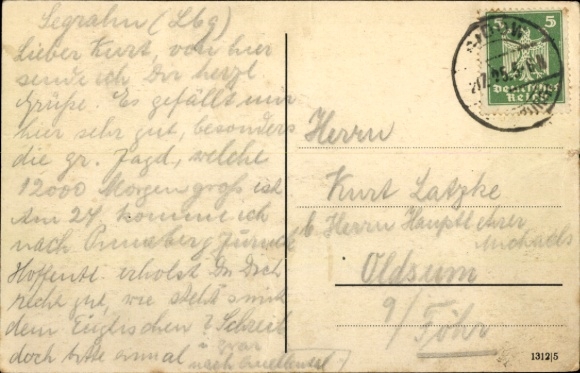 Segrahn (Lbg)
Lieber Kurt, von hier
sende ich Dir herzl.
Grüße. Es gefällt mir
hier sehr gut, besonders
die gr. Jagd, welche
12000 Morgen groß ist
Am 27. komme ich
nach Pinneberg zurück
Hoffentl. erholst Du Dich
recht gut, wie steht's mit
dem Englischen? Schreib
doch bitte einmal
u. zwar
nach
5 5
Deutsches
Reich
Herrn
Kurt Latzke
b. Herrn Hauptlehrer
Michaels
Oldsum
a/
Föhr
1312|5